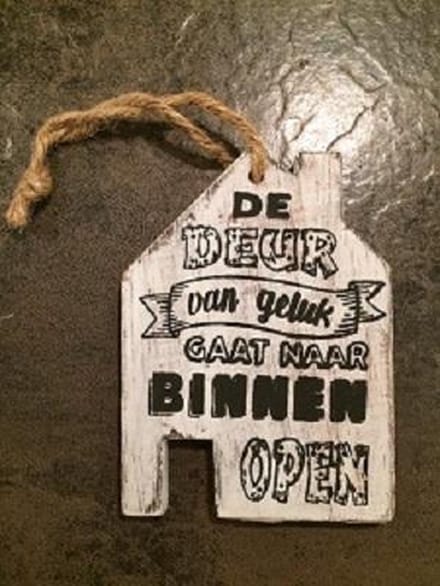 DE
DEUR
van geluk
GAAT NAAR
BINNEN
OPEN